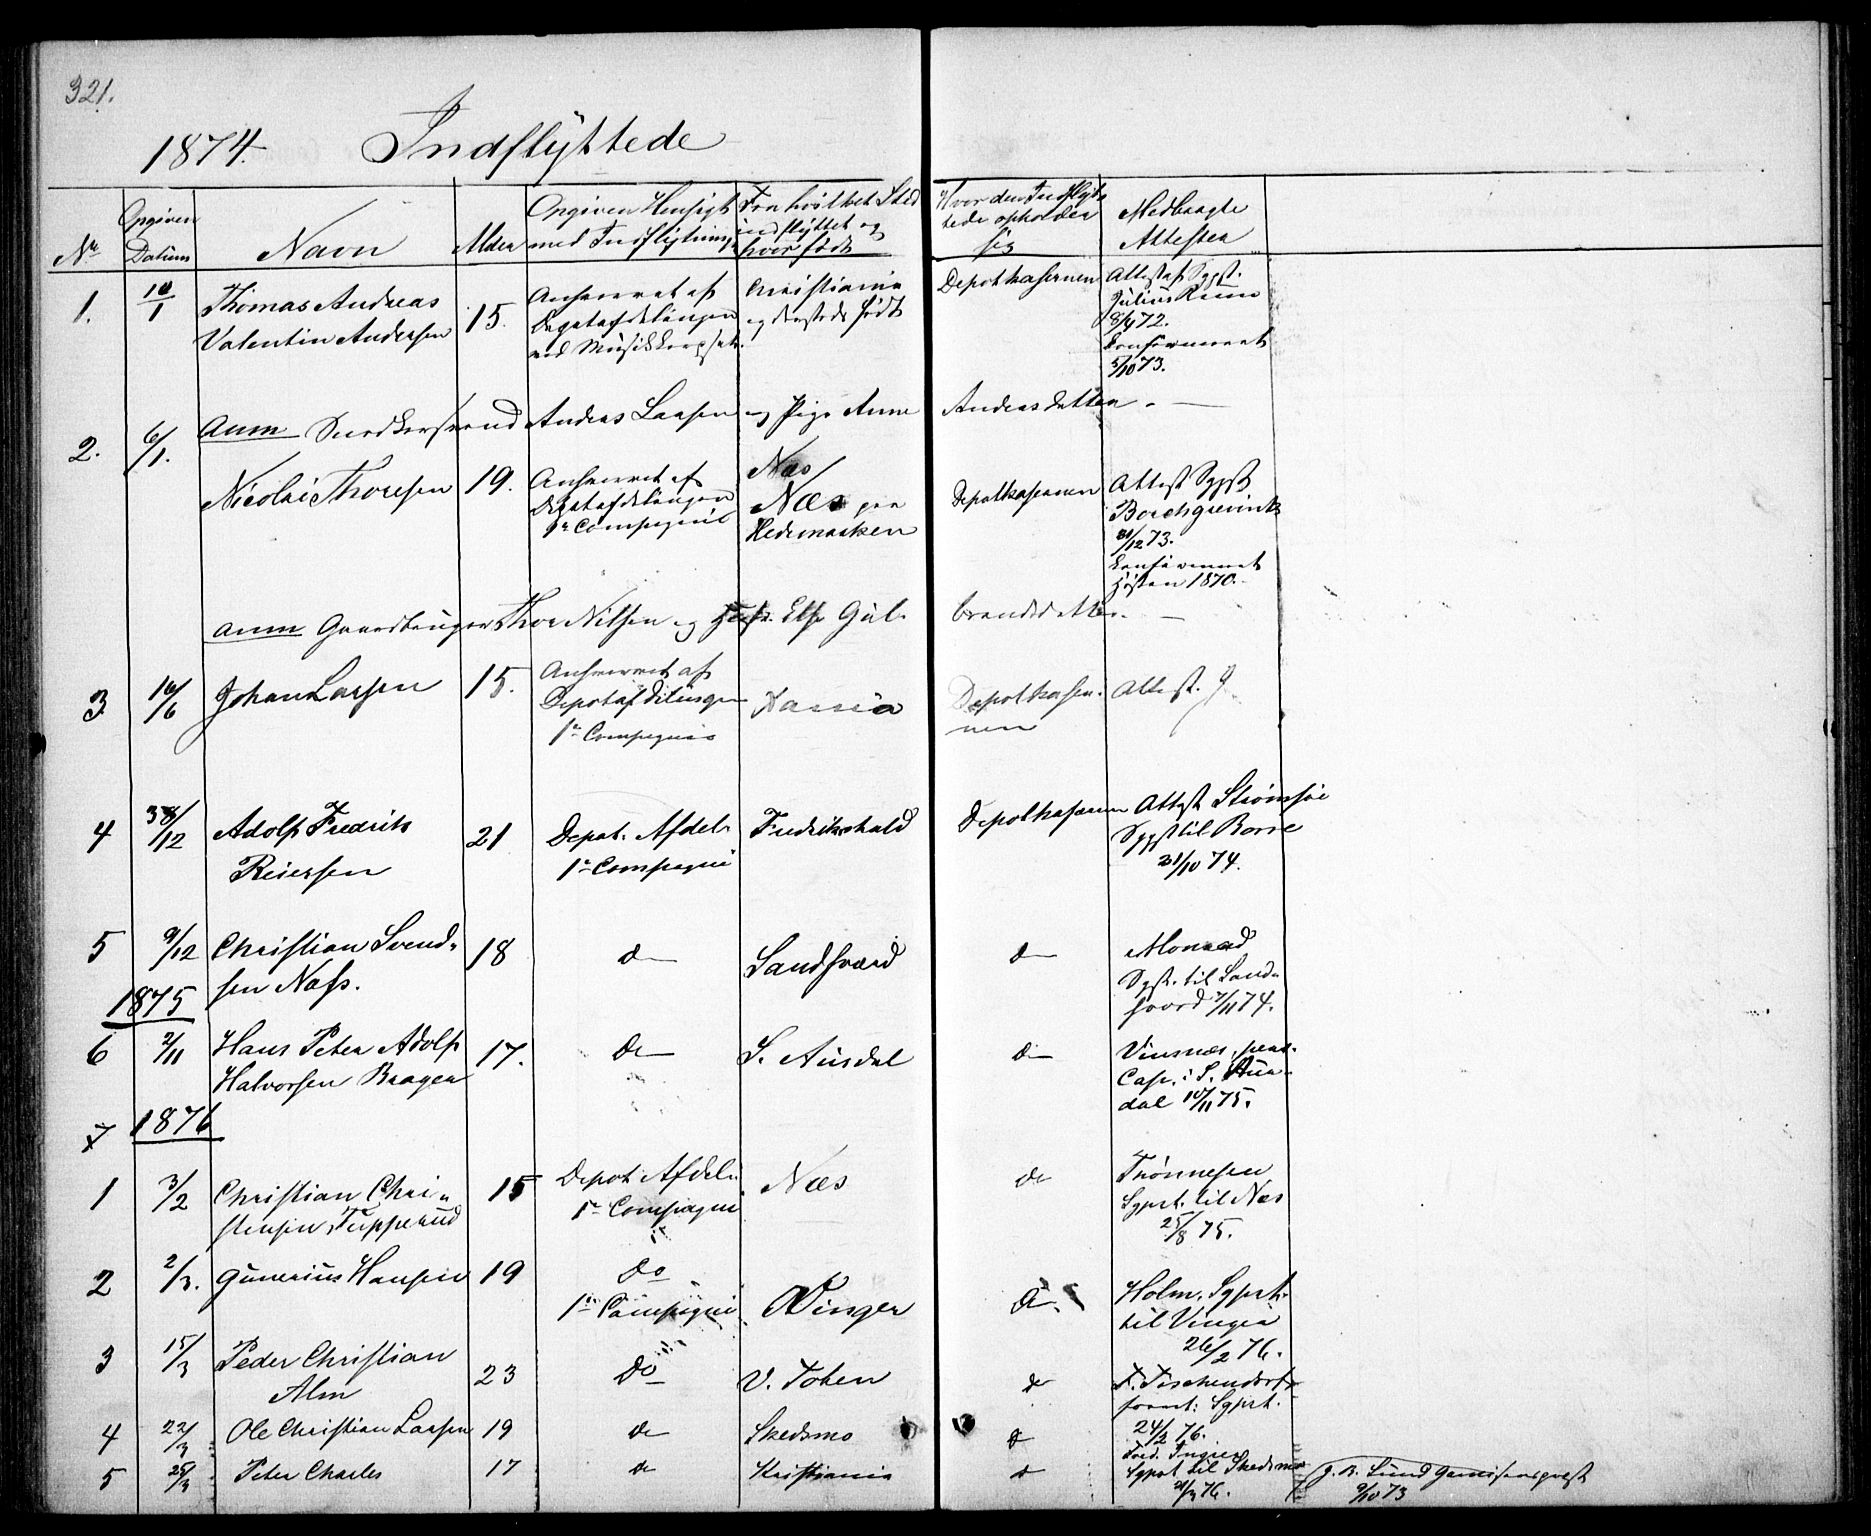 321.
1874. Indflyttede
No
Opgiven Datum
Navn
Alder
Opgiven Hensigt med Indflytningen
Fra hvilket Sted indflyttet og hvor født
Hvor den Indflyttede opholder sig
Medbragte Attester
1. 10/1 Thomas Andreas Valentin Andersen 15. Anhvervet af Depotafdelingen ved Musikkorpset. Christiania og dersteds født Depotkasernen Attest af Sgpst. Julius Riise 8/4 72. Konfirmeret 5/10 73.
Anm Snedkersvend Anders Larsen og Pige Anne Andersdatter. —
2. 6/1. Nicolai Thoresen 19. Anhvervet af Depotafdelingen 1ste Compagnie Næs/ Næs paa Hedemarken Depotkasernen Attest Sgpst Borchgrevink 31/12 73. Konfirmeret Høsten 1870.
Anm Gaardbruger Thor Nilsen og Else Gulbrandsdatter. —
3. 16/6 Johan Larsen 15. Anhvervet af Depotafdelingen 1ste Compagnie Xania Depotkasernen Attest.
4 /12 Adolf Fredrik Reiersen 21 Depot. Afdel. 1ste Compagni Fredrikshald Depotkasernen Attest Strømsøe Sgpst til Borre 31/10 74.
5 9/12 Christian Svendsen Næss. 18 do Sandsværd do Monrad Sgpr. til Sandsvord 7/11 74.
1875
6 2/11 Hans Peter Adolf Halvorsen Bragen 17. do S. Ausdal do Vinsnæs, pers. Cap. i S. Audal 10/11 75.
7 1876
1 3/2 Christian Christensen Tupperud 15 Depot Afdel. 1ste Compagni Næs do Trønnesen Sgprt. til Næs 25/8 75.
2 2/3. Gunerius Hansen 19 Do 1ste Compagni Vinger do. Holm. Sgprt. til Vinger 26/2 76.
3 15/3 Peder Christian Alm 23 Do V. Toten do F. Tischendorf forret: Sgprt. 24/2 76.
4 22/3 Ole Christian Larsen 19 do Skedsmo do Fred. Ingier Sgprst til Skedsmo 21/3 76.
5 25/3 Peter Charles 17 do Kristiania do J. B. Lund Garnisonspræst 9/10 73